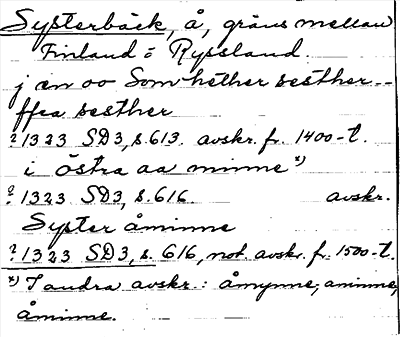 Systerbäck, å, gräns mellan
Finland o Ryssland.
j æn oo Som hether sesther--
ffra sesther
? 1323 SD3, s. 613. avskr. fr. 1400-t.
i östra aa minne *)
? 1323 SD3, s. 616. avskr.
Syster åminne
? 1323 SD3, s. 616, not. avskr. fr. 1500-t.
*) I andra avskr.: åmynne, aminne,
åminne.